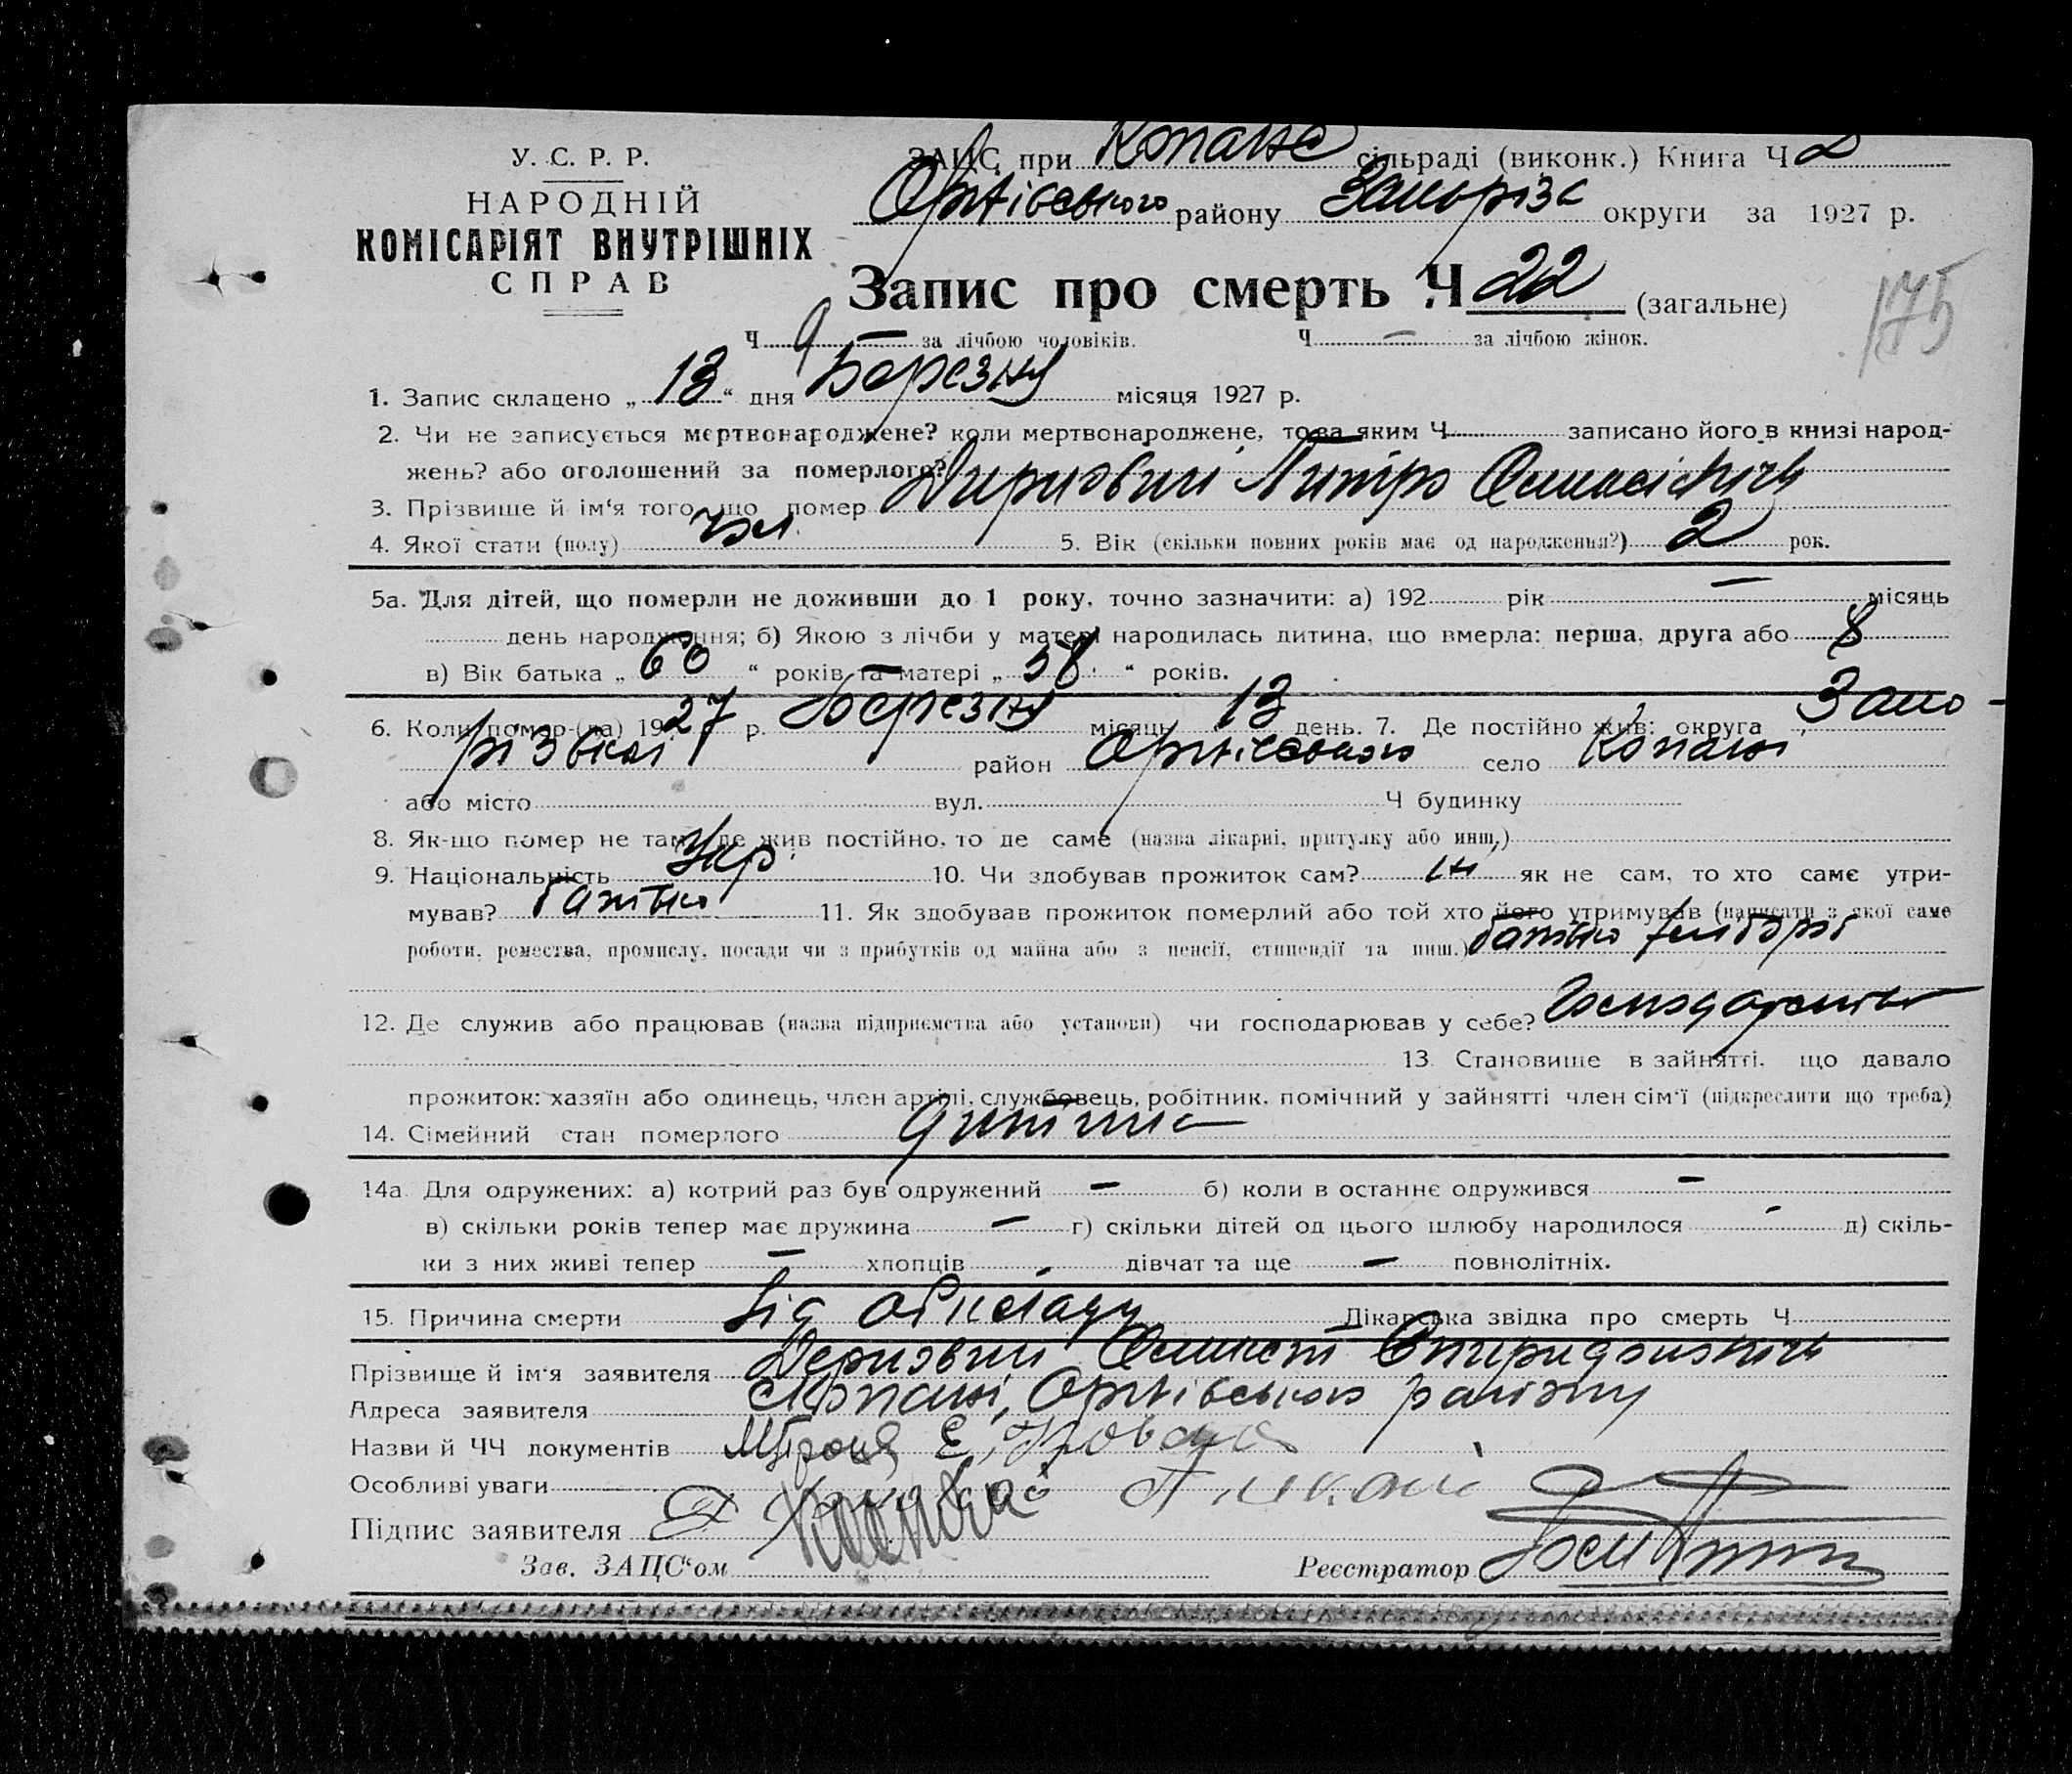 У. С. Р. Р.
НАРОДНІЙ
КОМІСАРІЯТ ВНУТРІШНІХ
СПРАВ
ЗАЦС при Копане сільраді (виконк.) Книга Ч 2
Оріхівського району Запоріз округи за 1927 р.
Запис про смерть Ч 22 (загальне)
175
Ч 9 — за лічбою чоловіків. Ч — за лічбою жінок.
1. Запис складено „ 13 “ дня Березня місяця 1927 р.
2. Чи не записується мертвонароджене? коли мертвонароджене, то за яким Ч — записано його в книзі народ-
жень? або оголошений за померлого?
3. Прізвище й ім‘я того, що помер
4. Якої стати (полу) чол. 5. Вік (скільки повних років має од народження?) 2 рок.
5а. Для дітей, що померли не доживши до 1 року, точно зазначити: а) 192 рік — місяць
день народження; б) Якою з лічби у матері народилась дитина, що вмерла: перша, друга або 8
в) Вік батька „ 60 “ років та матері „ 58 “ років.
6. Коли помер-(ла) 1927 р. Березня місяць 13 день. 7. Де постійно жив: округа Запо-
різької район Оріхівського село Копані
або місто вул. Ч будинку
8. Як-що помер не там, де жив постійно, то де саме (назва лікарні, притулку або инш.)
9. Національність Укр. 10. Чи здобував прожиток сам? ні як не сам, то хто саме утри-
мував? батько 11. Як здобував прожиток померлий або той хто його утримував (написати з якої саме
роботи, ремества, промислу, посади чи з прибутків од майна або з пенсії, стипендії та инш.) батько хлібороб
12. Де служив або працював (назва підприємства або установи) чи господарював у себе?
13. Становище в зайнятті, що давало
прожиток: хазяїн або одинець, член артілі, службовець, робітник, помічний у зайнятті член сім‘ї (підкреслити що треба)
14. Сімейний стан померлого дитина
14а. Для одружених: а) котрий раз був одружений — б) коли в останнє одружився —
в) скільки років тепер має дружина — г) скільки дітей од цього шлюбу народилося - д) скіль-
ки з них живі тепер — хлопців - дівчат та ще — повнолітніх.
15. Причина смерти Від Лікарська звідка про смерть Ч
Прізвище й ім‘я заявителя
Адреса заявителя с. Копані, Оріхівського району
Назви й ЧЧ документів
Особливі уваги
Підпис заявителя
Зав. ЗАЦС‘ом Реєстратор